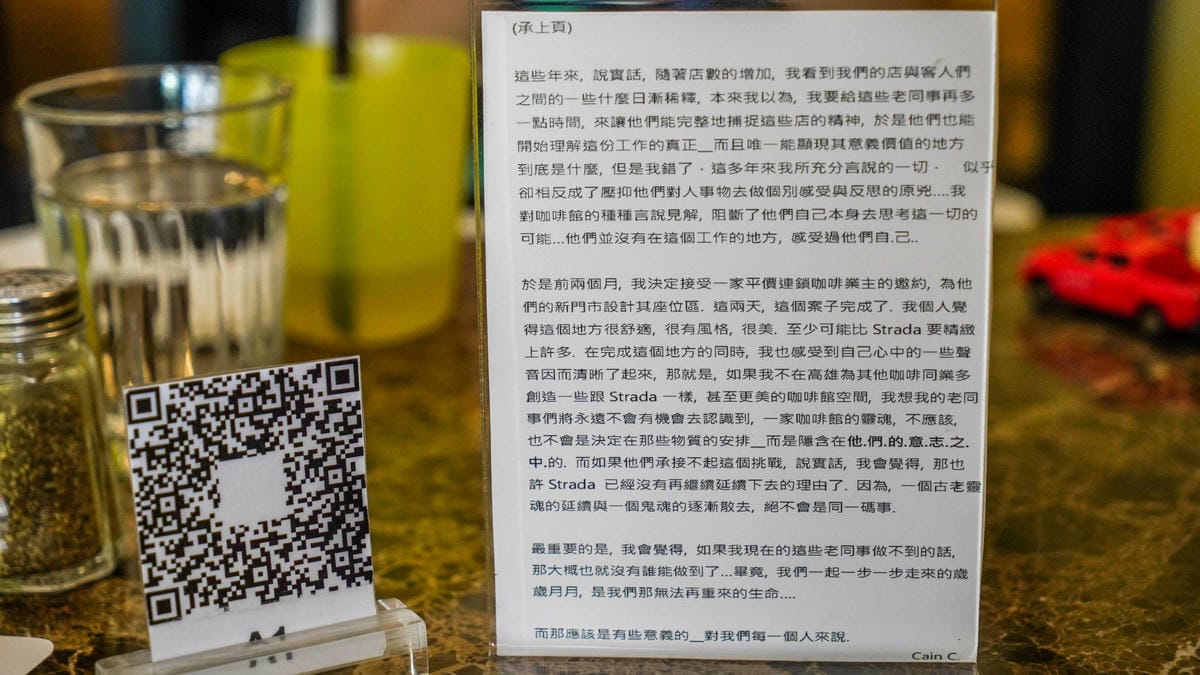 (承上頁)
這些年來, 說實話, 隨著店數的增加, 我看到我們的店與客人們
之間的一些什麼日漸稀釋, 本來我以為, 我要給這些老同事再多
一點時間, 來讓他們能完整地捕捉這些店的精神, 於是他們也能
開始理解這份工作的真正__而且唯一能顯現其意義價值的地方
到底是什麼, 但是我錯了．這多年來我所充分言說的一切． 似乎
卻相反成了壓抑他們對人事物去做個別感受與反思的原兇....我
對咖啡館的種種言說見解, 阻斷了他們自己本身去思考這一切的
可能...他們並沒有在這個工作的地方, 感受過他們自.己..
於是前兩個月, 我決定接受一家平價連鎖咖啡業主的邀約, 為他
們的新門市設計其座位區. 這兩天, 這個案子完成了. 我個人覺
得這個地方很舒適, 很有風格, 很美. 至少可能比 Strada 要精緻
上許多. 在完成這個地方的同時, 我也感受到自己心中的一些聲
音因而清晰了起來, 那就是, 如果我不在高雄為其他咖啡同業多
創造一些跟 Strada 一樣, 甚至更美的咖啡館空間, 我想我的老同
事們將永遠不會有機會去認識到, 一家咖啡館的靈魂, 不應該,
也不會是決定在那些物質的安排__而是隱含在他.們.的.意.志.之.
中.的. 而如果他們承接不起這個挑戰, 說實話, 我會覺得, 那也
許 Strada 已經沒有再繼續延續下去的理由了. 因為, 一個古老靈
魂的延續與一個鬼魂的逐漸散去, 絕不會是同一碼事.
最重要的是, 我會覺得, 如果我現在的這些老同事做不到的話,
那大概也就沒有誰能做到了...畢竟, 我們一起一步一步走來的歲
歲月月, 是我們那無法再重來的生命....
而那應該是有些意義的__對我們每一個人來說.
Cain C.
A1